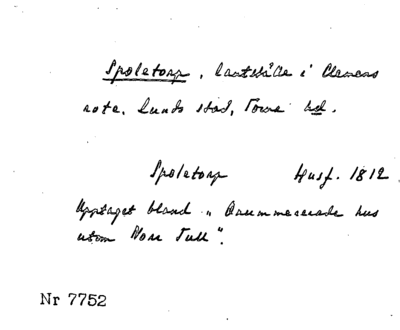 Spoletorp, lantställe i Clemens
rote, Lunds stad, Torna hd.
Spoletorp Husf. 1812
Upptaget bland "Danmmerade hus
utom Norr Tull".
Nr 7752